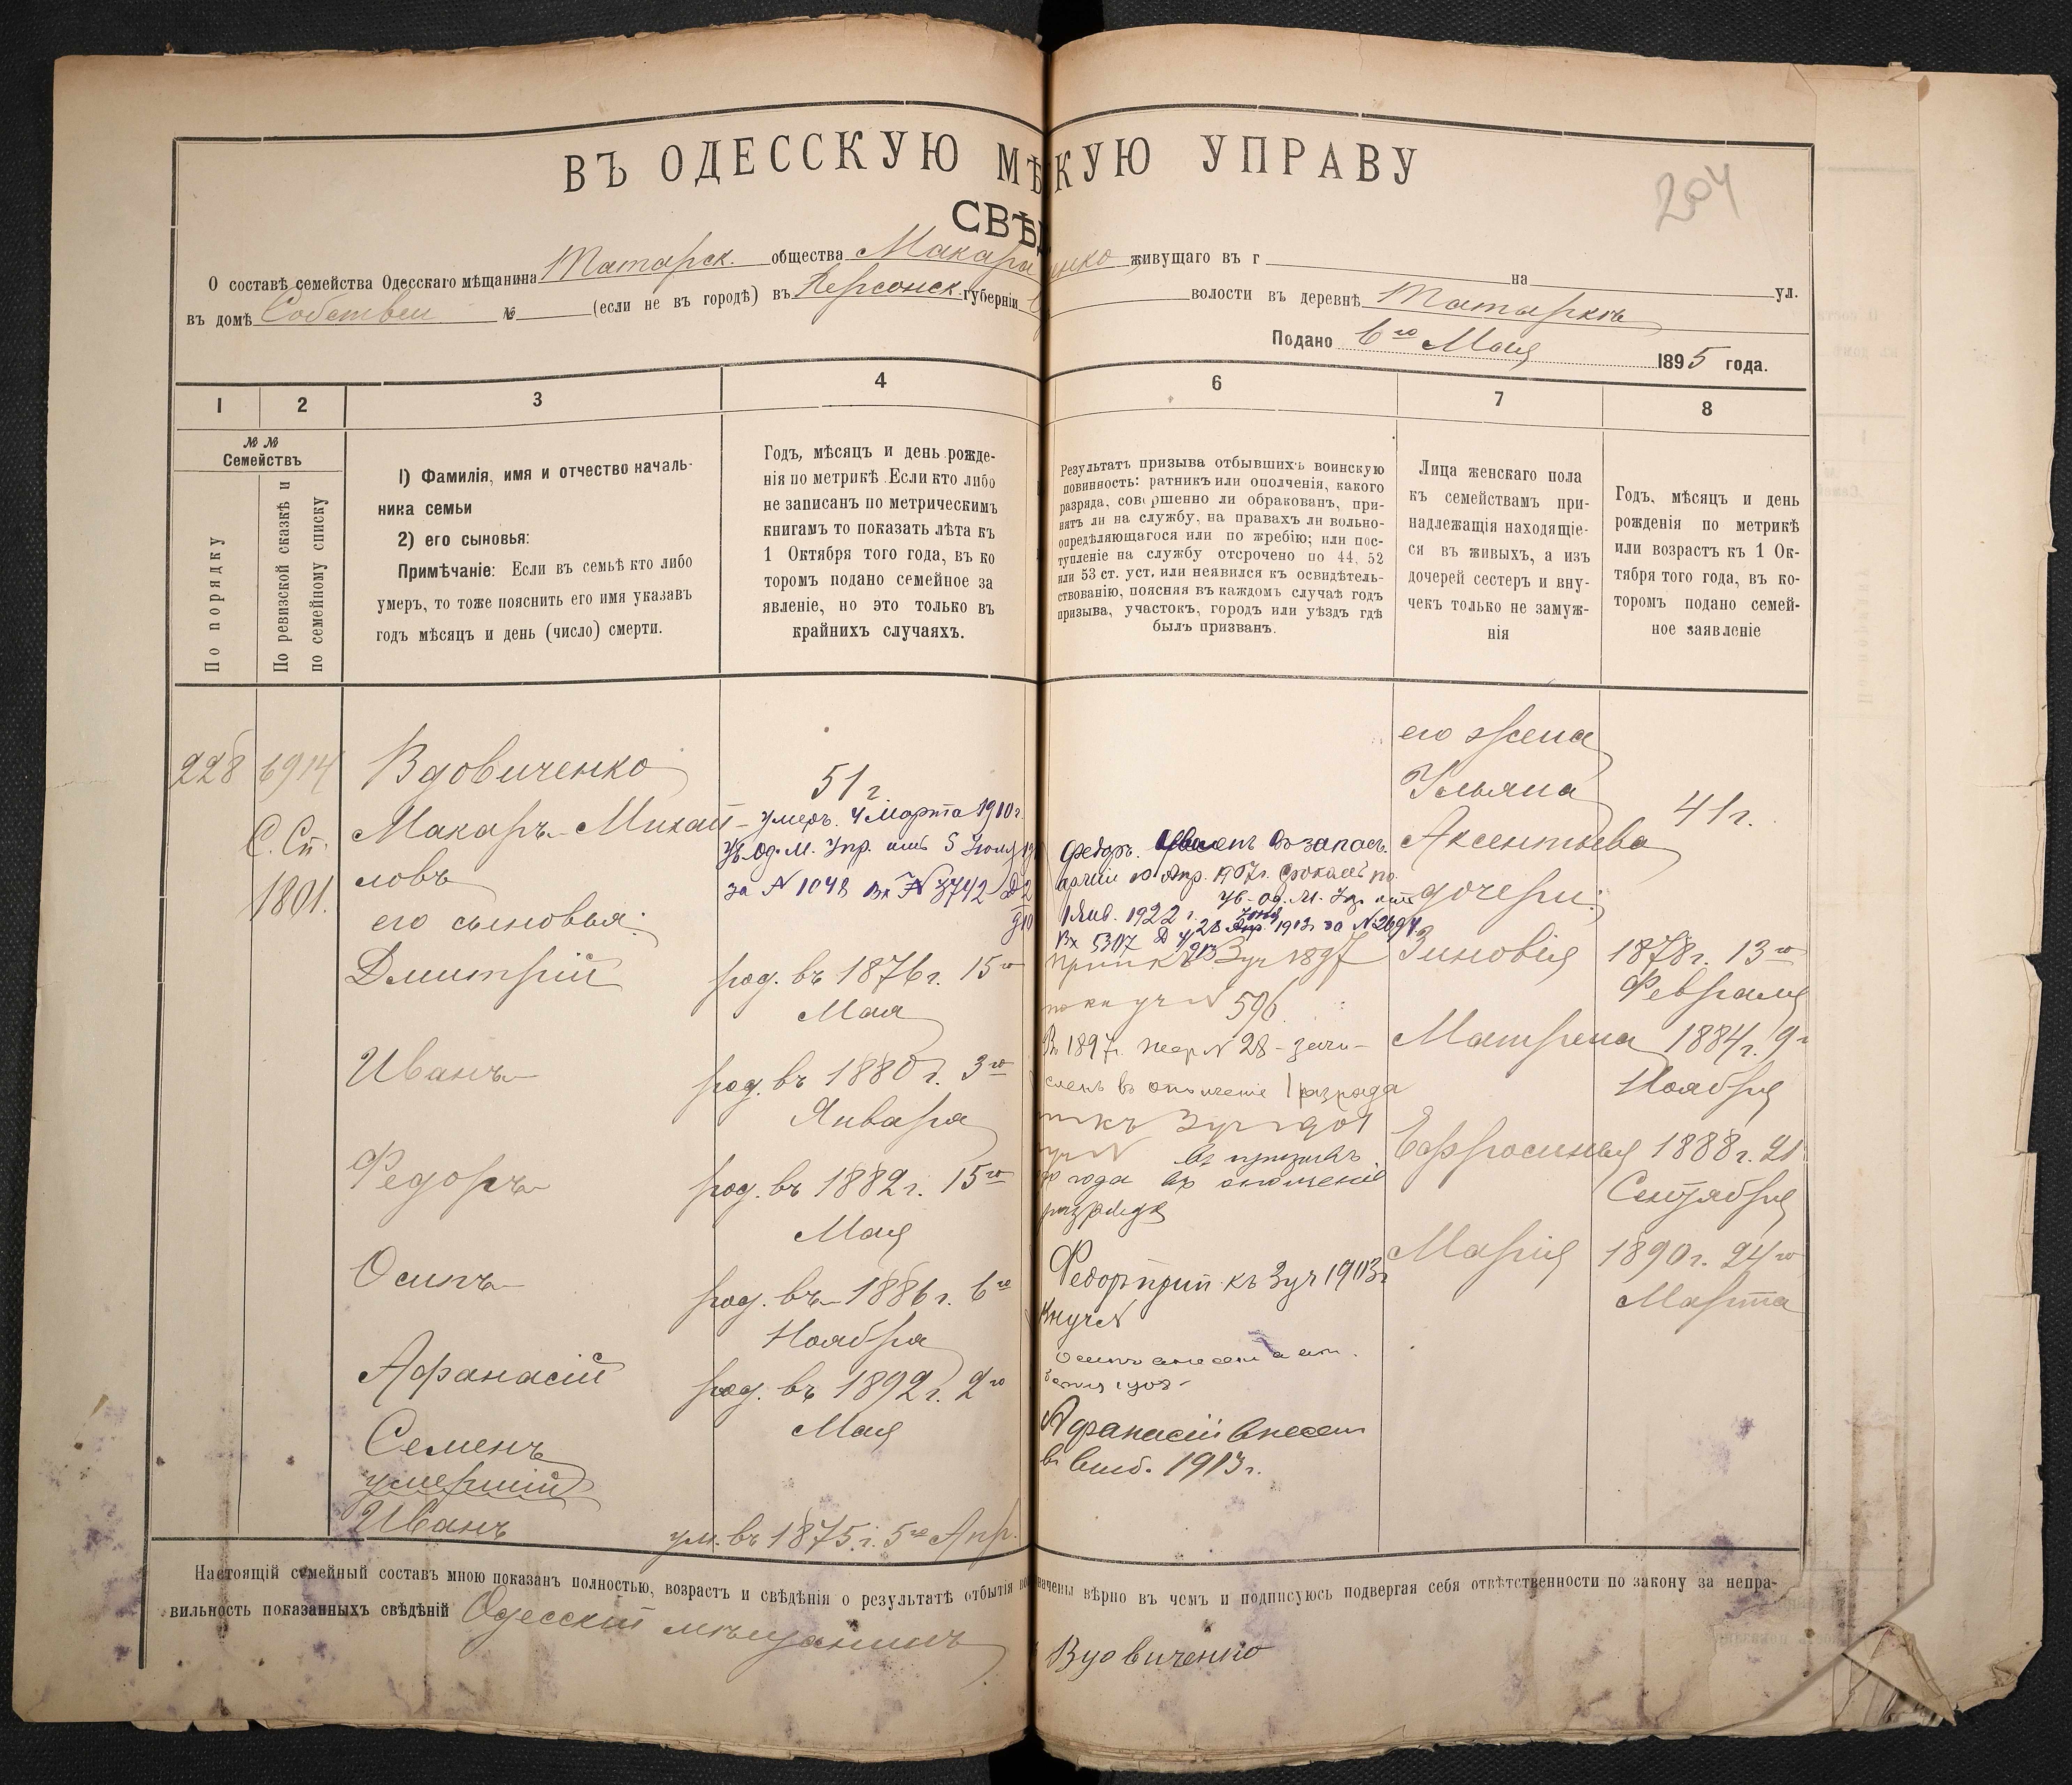 ВЪ ОДЕССКУЮ МѢ КУЮ УПРАВУ
204
СВѢ
О составѣ семейства Одесскаго мѣщанина Татарск. общества Макара нко живущаго въ г на ул.
въ домѣ Собствен № (если не въ городѣ) въ Херсонск. губерніи волости въ деревнѣ Татаркѣ
Подано 6го Мая 1895 года.
1 2 3 4 6 7 8
№ №
Семействъ
По порядку
По ревизской сказкѣ и
по семейному списку
1) Фамилія, имя и отчество началь-
ника семьи
2) его сыновья:
Примѣчаніе: Если въ семьѣ кто либо
умеръ, то тоже пояснить его имя указавъ
годъ мѣсяцъ и день (число) смерти.
Годъ, мѣсяцъ и день рожде-
нія по метрикѣ. Если кто либо
не записанъ по метрическимъ
книгамъ то показать лѣта къ
1 Октября того года, въ ко
торомъ подано семейное за
явленіе, но это только въ
крайнихъ случаяхъ.
Результатъ призыва отбывшихъ воинскую
повинность: ратникъ или ополченія, какого
разряда, совершенно ли обракованъ, при-
нятъ ли на службу, на правахъ ли вольно-
опредѣляющагося или по жребію; или пос-
тупленіе на службу отсрочено по 44, 52
или 53 ст. уст, или неявился къ освидѣтель-
ствованію, поясняя въ каждомъ случаѣ годъ
призыва, участокъ, городъ или уѣздъ гдѣ
былъ призванъ.
Лица женскаго пола
къ семействамъ при-
надлежащія находящіе-
ся въ живыхъ, а изъ
дочерей сестеръ и вну-
чекъ только не замуж-
нія
Годъ, мѣсяцъ и день
рожденія по метрикѣ
или возрастъ къ 1 Ок-
тября того года, въ ко-
торомъ подано семей-
ное заявленіе
228 6914
С. Сп.
1801.
Вдовиченко
Макаръ Михай-
ловъ
его сыновья:
Дмитрій
Иванъ
Федоръ
Осипъ
Афанасій
Семенъ
умершій
Иванъ
51 г.
умеръ. 4 Марта 1910 г.
Ув. Од. М. Упр. отъ 5 Іюля
за № 1048 Вх № 3742
род. въ 1876 г. 15го
Мая
род. въ 1880 г. 3го
Января
род. въ 1882 г. 15го
Мая
род. въ 1886 г. 6го
Ноября
род. въ 1892 г. 2го
Мая
ум. въ 1875 г. 5го Апр.
Федоръ. въ запасъ
арміи Апр. 1907 г. срокомъ по
1 Янв. 1922 г. Ув. Од. М. Упр.
1913 за № 2694
Вх 5307
3 уч 1897
№ 596
В 1897 г. жер № 28 - зачи-
сленъ въ ополченіе 1 разряда
года въ ополченіе
разряда
Федоръ прип. къ 3 уч 1903 г
Кн уч №
Афанасій внесен
в 1913 г.
его жена
Ульяна
Аксентьева
дочери:
Зиновія
Матрена
Ефросинья
Марія
41 г.
1878 г. 13го
Февраля
1884 г. 9
Ноября
1888 г. 21
Сентября
1890 г. 24го
Марта
Настоящій семейный составъ мною показанъ полностью, возрастъ и свѣдѣнія о результатѣ отбытія во начены вѣрно въ чемъ и подписуюсь подвергая себя отвѣтственности по закону за непра-
вильность показанныхъ свѣдѣній Одесскій мѣщанинъ Вдовиченко